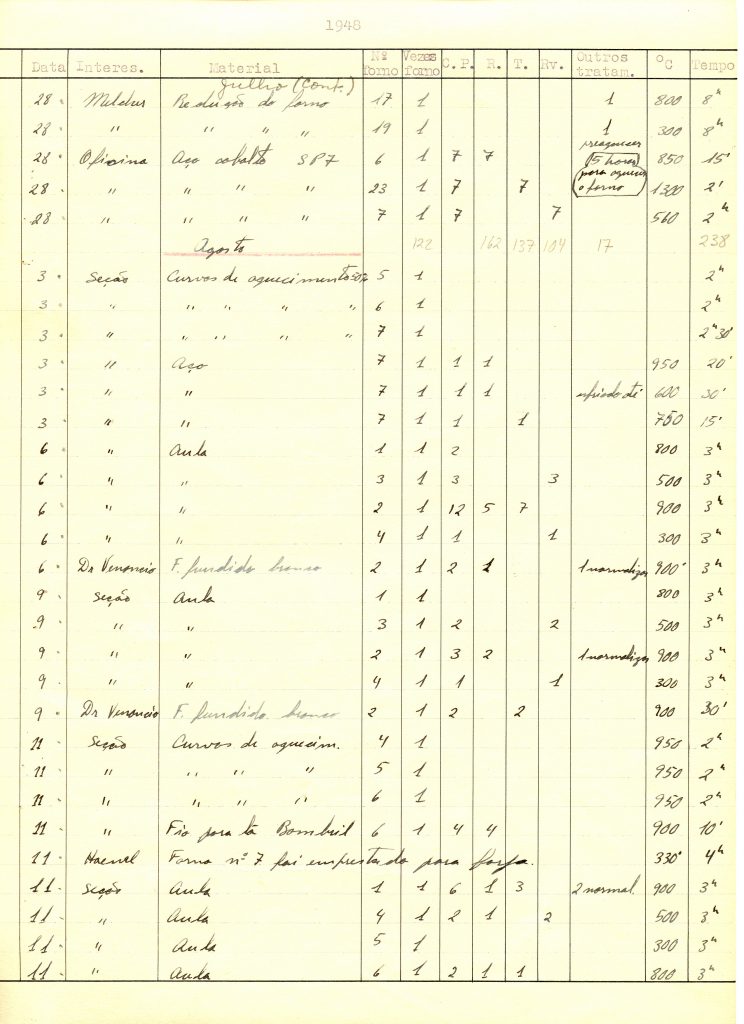 1948
Data Interes. Material Nº forno Vezes forno C.P. R. T. Rv. Outros tratam. ºC Tempo
Julho (Cont.)
28 Redução do forno 17 1 1 800 8h
28 " " " " 19 1 1 300 8h
28 Oficina Aço cobalto SP7 6 1 7 7 preaquecer 850 15'
28 " " " " 23 1 7 7 15 horas para aquecer o forno 1300 2'
28 " " " " 7 1 7 7 560 2h
Agosto 122 162 137 104 17 238
3 Seção Curvas de aquecimento 5 1 2h
3 " " " " " 6 1 2h
3 " " " " " 7 1 2h30'
3 " Aço 7 1 1 1 950 20'
3 " " 7 1 1 1 esfriado até 600 30'
3 " " 7 1 1 1 750 15'
6 " Aula 1 1 2 800 3h
6 " " 3 1 3 3 500 3h
6 " " 2 1 12 5 7 900 3h
6 " " 4 1 1 1 300 3h
6 Dr Venancio F. fundido branco 2 1 2 1 1 normalizar 900° 3h
9 Seção Aula 1 1 800 3h
9 " " 3 1 2 2 500 3h
9 " " 2 1 3 2 1 normalizar 900 3h
9 " " 4 1 1 1 300 3h
9 Dr Venancio F. fundido branco 2 1 2 2 900 30'
11 Seção Curvas de aquecim. 4 1 950 2h
11 " " " " 5 1 950 2h
11 " " " " 6 1 950 2h
11 " Fio para lã Bombril 6 1 4 4 900 10'
11 Haenel Forno nº 7 foi emprestado para forja. 330° 4h
11 Seção Aula 1 1 6 1 3 2 normal. 900 3h
11 " Aula 4 1 2 1 2 500 3h
11 " Aula 5 1 300 3h
11 " Aula 6 1 2 1 1 800 3h